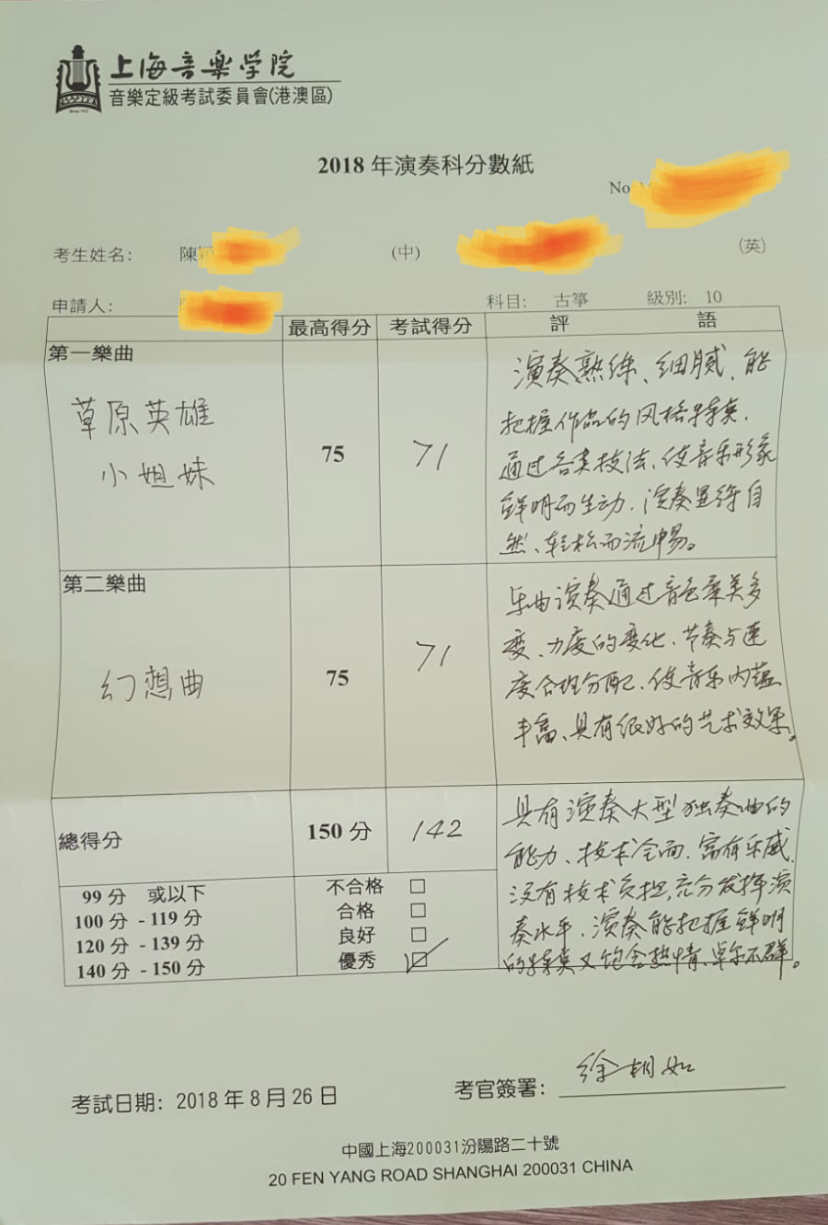 上海音樂学院
音樂定級考試委員會(港澳區)
2018 年演奏科分數紙
No
考生姓名: 陳 (中) (英)
申請人: 科目: 古箏 級別: 10
最高得分 考試得分 評 語
第一樂曲
草原英雄
小姐妹
75
71
演奏熟练、细腻、能
把握作品的风格特点,
通过各类技法、使音乐形象
鲜明而生动,演奏显得自
然、轻松而流畅。
第二樂曲
幻想曲
75
71
乐曲演奏通过音色柔美多
变、力度的变化、节奏与速
度合理分配、使音乐内蕴
丰富、具有很好的艺术效果。
總得分
150 分
142
具有演奏大型独奏曲的
能力、技术全面,富有乐感,
没有技术负担,充分发挥演
奏水平,演奏能把握鲜明
的特点又饱含热情、卓尔不群。
99 分 或以下 不合格 ☐
100 分 - 119 分 合格 ☐
120 分 - 139 分 良好 ☐
140 分 - 150 分 優秀 ☑
考試日期: 2018 年 8 月 26 日
考官簽署:
中國上海200031汾陽路二十號
20 FEN YANG ROAD SHANGHAI 200031 CHINA